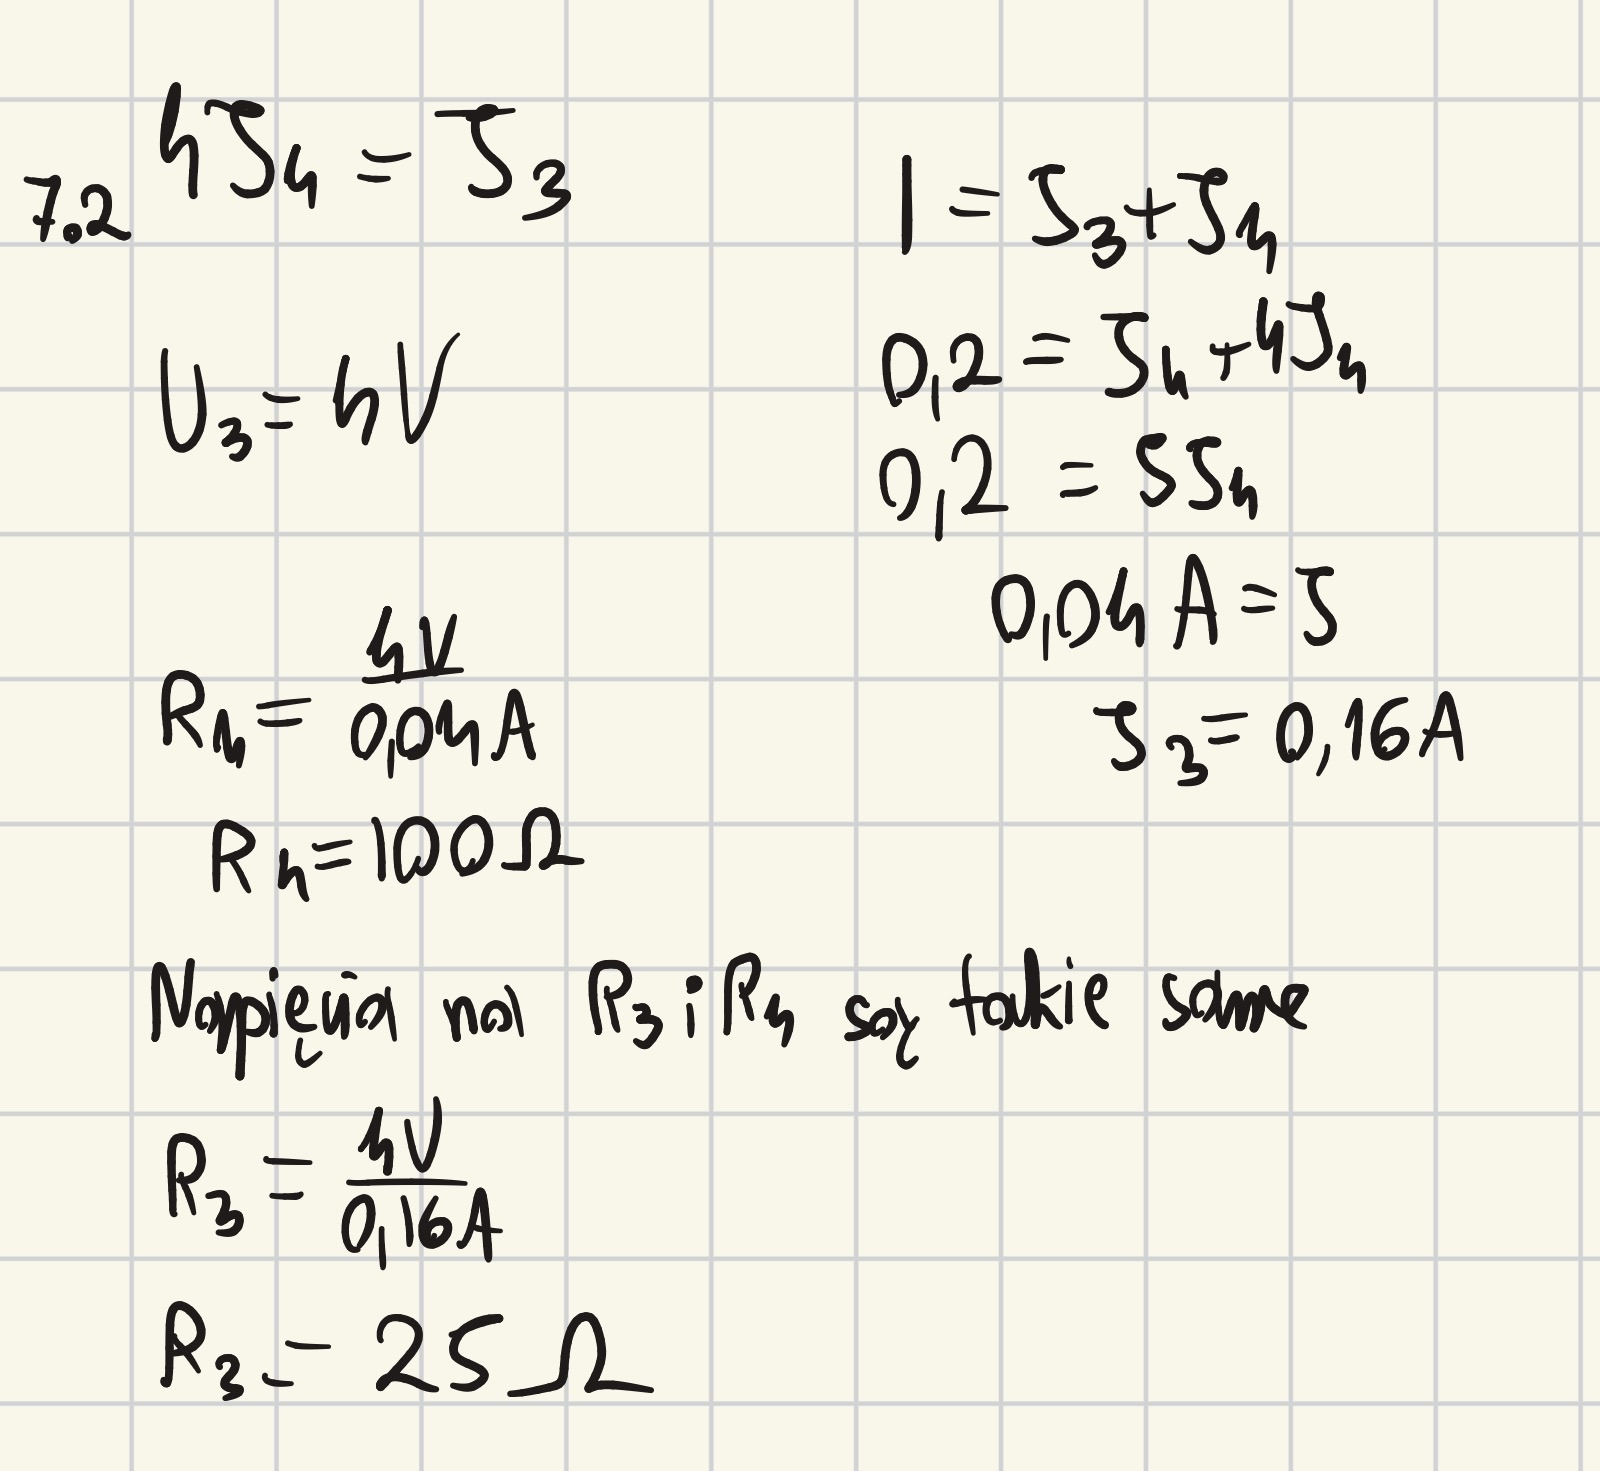 7.2 4I₄ = I₃
U₃ = 4V
R₄ = 4V / 0,04A
R₄ = 100Ω
I = I₃ + I₄
0,2 = I₄ + 4I₄
0,2 = 5I₄
0,04 A = I
I₃ = 0,16A
Napięcia na R₃ i R₄ są takie same
R₃ = 4V / 0,16A
R₃ = 25 Ω